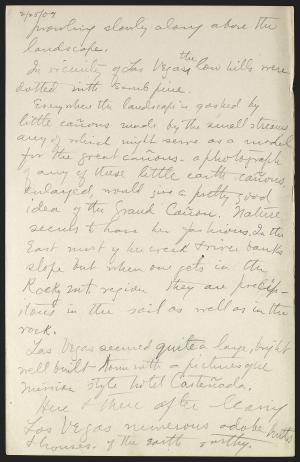 2/25/07
prowling slowly along above the
landscape.
In vicinity of Las Vegas, the low hills were
dotted with scrub pine.
Everywhere the landscape is gashed by
little cañons made by the small streams
any of which might serve as a model
for the great cañons. a photograph
of any of these little earth cañons,
enlarged, would give a pretty good
idea of the Grand Cañon. Nature
seems to have her fashions. In the
East most of the creek & river banks
slope but when one gets in the
Rocky mt. region they are precip-
itous in the soil as well as in the
rock.
Las Vegas seemed quite a large, bright
well built town with a picturesque
mission style hotel Castañada.
Here & there after leaving
Las Vegas numerous adobe huts
& houses. of the earth earthy.